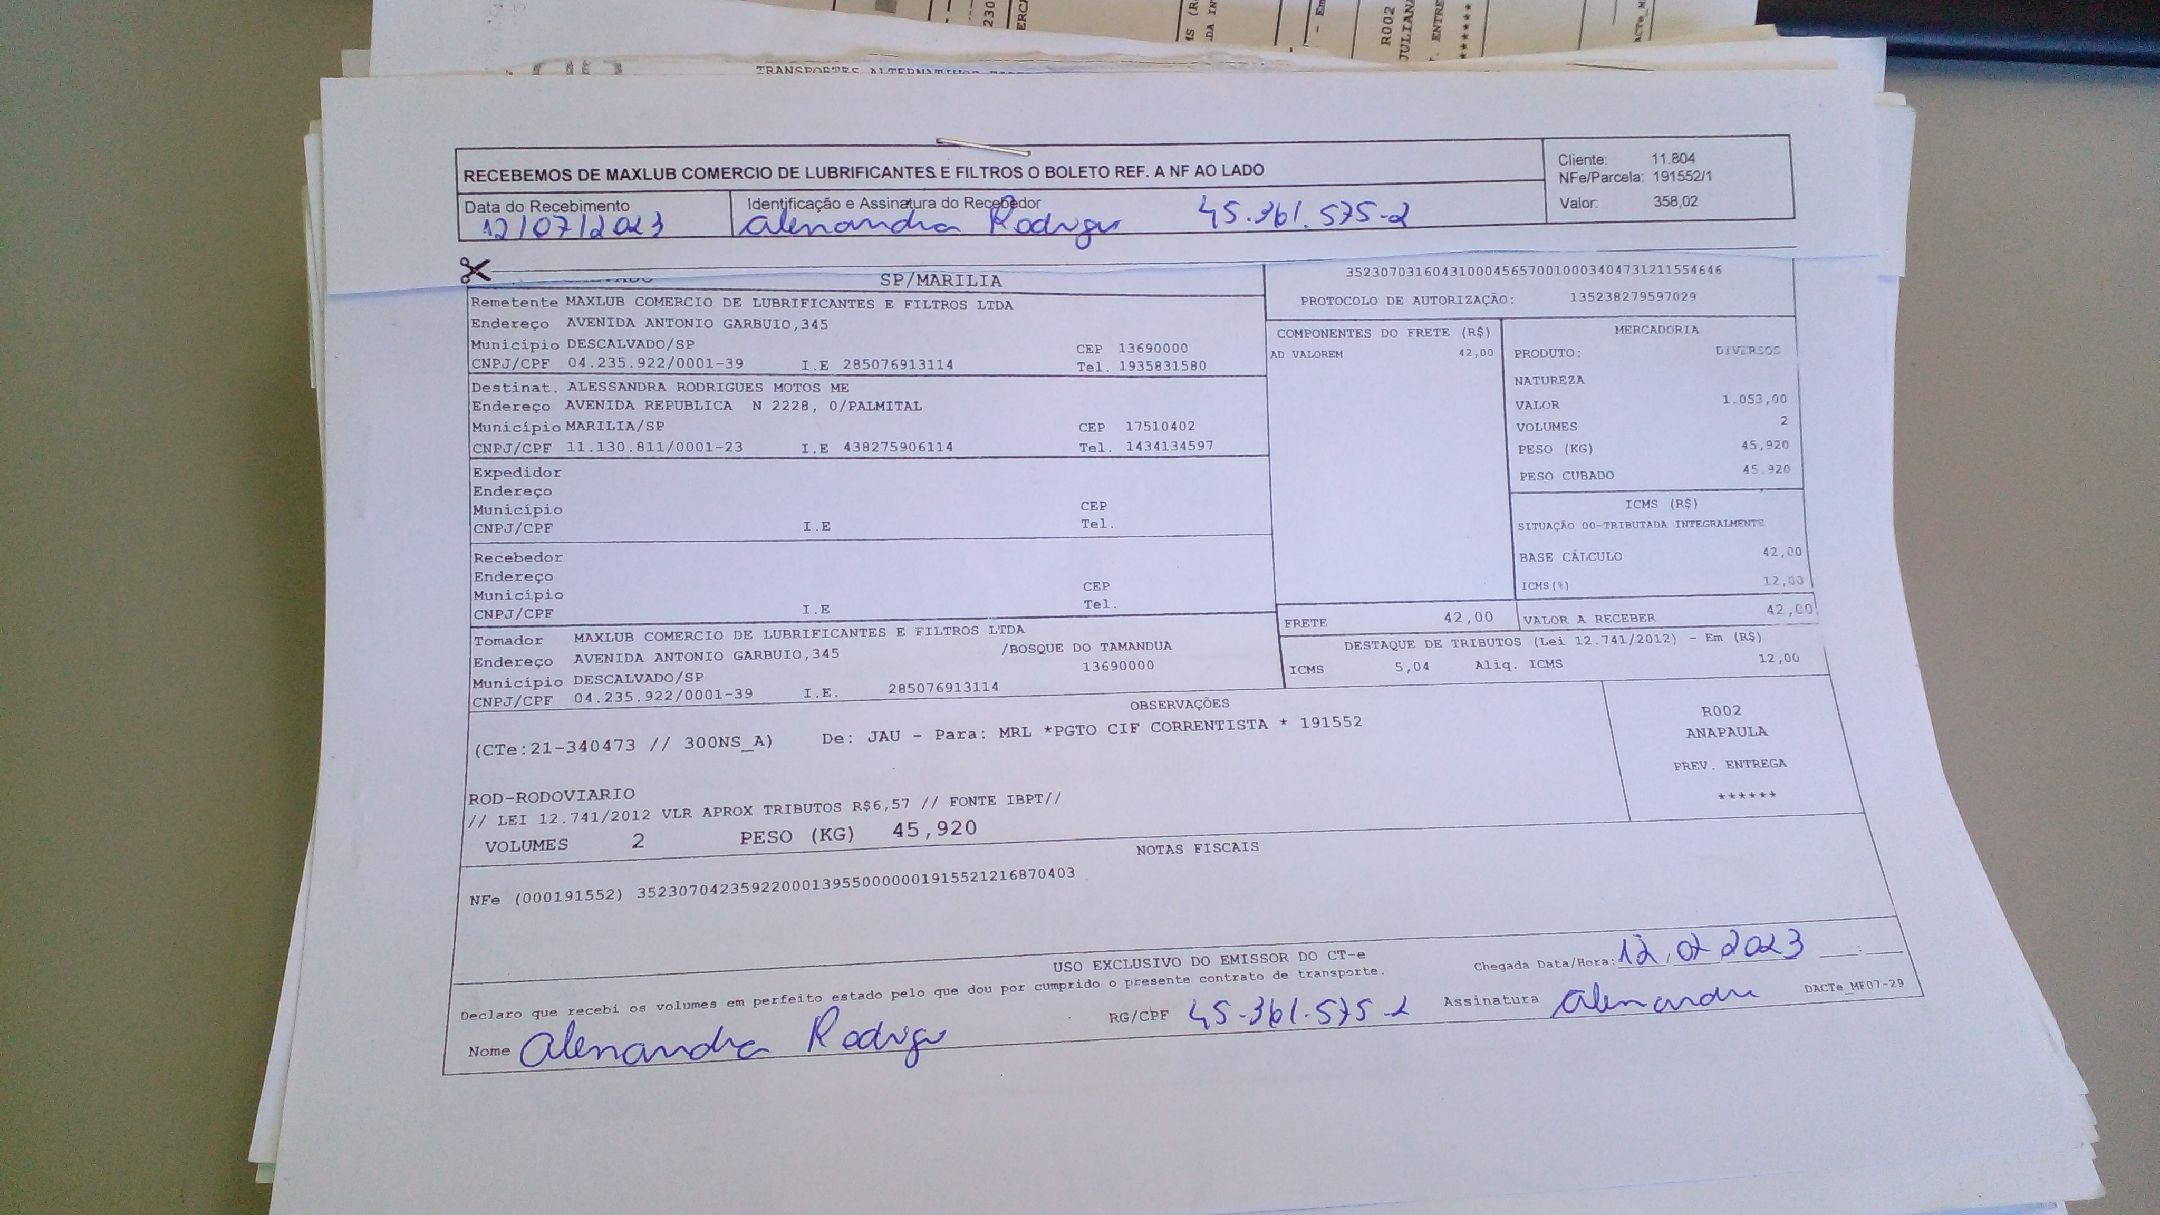 RECEBEMOS DE MAXLUB COMERCIO DE LUBRIFICANTES E FILTROS O BOLETO REF. A NF AO LADO
Cliente: 11.804
NFe/Parcela: 191552/1
Valor: 358,02
Data do Recebimento
12/07/2023
Identificação e Assinatura do Recebedor
Alessandra Rodrigu 45.361.575-2
SP/MARILIA
35230703160431000456570010003404731211554646
PROTOCOLO DE AUTORIZAÇÃO: 135238279597029
Remetente MAXLUB COMERCIO DE LUBRIFICANTES E FILTROS LTDA
Endereço AVENIDA ANTONIO GARBUIO,345
Município DESCALVADO/SP CEP 13690000
CNPJ/CPF 04.235.922/0001-39 I.E 285076913114 Tel. 1935831580
Destinat. ALESSANDRA RODRIGUES MOTOS ME
Endereço AVENIDA REPUBLICA N 2228, 0/PALMITAL
Município MARILIA/SP CEP 17510402
CNPJ/CPF 11.130.811/0001-23 I.E 438275906114 Tel. 1434134597
Expedidor
Endereço
Município CEP
CNPJ/CPF I.E Tel.
Recebedor
Endereço
Município CEP
CNPJ/CPF I.E Tel.
Tomador MAXLUB COMERCIO DE LUBRIFICANTES E FILTROS LTDA
Endereço AVENIDA ANTONIO GARBUIO,345 /BOSQUE DO TAMANDUA
Município DESCALVADO/SP 13690000
CNPJ/CPF 04.235.922/0001-39 I.E. 285076913114
COMPONENTES DO FRETE (R$)
AD VALOREM 42,00
MERCADORIA
PRODUTO: DIVERSOS
NATUREZA
VALOR 1.053,00
VOLUMES 2
PESO (KG) 45,920
PESO CUBADO 45.920
ICMS (R$)
SITUAÇÃO 00-TRIBUTADA INTEGRALMENTE
BASE CÁLCULO 42,00
ICMS(%) 12,00
FRETE 42,00 VALOR A RECEBER 42,00
DESTAQUE DE TRIBUTOS (Lei 12.741/2012) - Em (R$)
ICMS 5,04 Aliq. ICMS 12,00
OBSERVAÇÕES
(CTe:21-340473 // 300NS_A) De: JAU - Para: MRL *PGTO CIF CORRENTISTA * 191552
R002
ANAPAULA
PREV. ENTREGA
******
ROD-RODOVIARIO
// LEI 12.741/2012 VLR APROX TRIBUTOS R$6,57 // FONTE IBPT//
VOLUMES 2 PESO (KG) 45,920
NOTAS FISCAIS
NFe (000191552) 35230704235922000139550000001915521216870403
USO EXCLUSIVO DO EMISSOR DO CT-e
Declaro que recebi os volumes em perfeito estado pelo que dou por cumprido o presente contrato de transporte.
Chegada Data/Hora: 12,07 2023
Nome Alessandra Rodrigu RG/CPF 45.361.575-2 Assinatura Alessandr DACTe_MF07-29